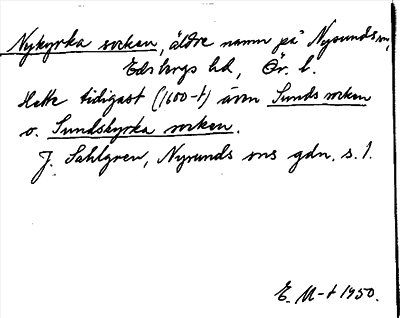 Nykyrka socken, äldre namn på Nysunds sn,
Edsbergs hd, Ör. l.
Hette tidigast (1600-t) även Sunds socken
o. Sundskyrka socken.
J. Sahlgren, Nysunds sns gdn, s. 1.
E. M-t 1950.